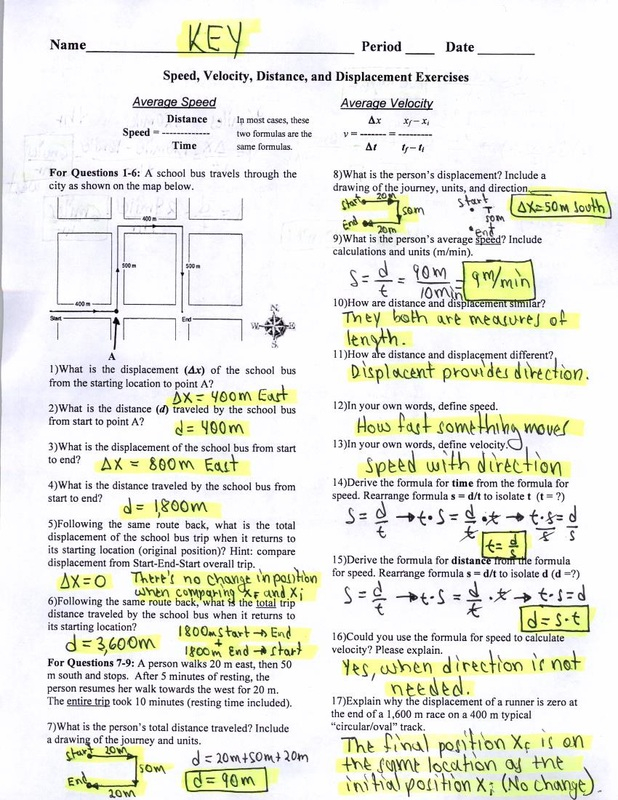 Name KEY Period Date
Speed, Velocity, Distance, and Displacement Exercises
Average Speed
Distance
Speed = -------------
Time
In most cases, these
two formulas are the
same formulas.
Average Velocity
Δx xf – xi
v = ------- = ---------
Δt tf – ti
For Questions 1-6: A school bus travels through the
city as shown on the map below.
400 m
500 m
500 m
400 m
Start
End
N
W E
S
A
1)What is the displacement (Δx) of the school bus
from the starting location to point A?
ΔX = 400m East
2)What is the distance (d) traveled by the school bus
from start to point A?
d = 400m
3)What is the displacement of the school bus from start
to end? ΔX = 800m East
4)What is the distance traveled by the school bus from
start to end?
d = 1,800m
5)Following the same route back, what is the total
displacement of the school bus trip when it returns to
its starting location (original position)? Hint: compare
displacement from Start-End-Start overall trip.
ΔX=0 There's no change in position
when comparing XF and Xi
6)Following the same route back, what is the total trip
distance traveled by the school bus when it returns to
its starting location?
d = 3,600m
1800m Start → End
+
1800m End → Start
For Questions 7-9: A person walks 20 m east, then 50
m south and stops. After 5 minutes of resting, the
person resumes her walk towards the west for 20 m.
The entire trip took 10 minutes (resting time included).
7)What is the person's total distance traveled? Include
a drawing of the journey and units.
Start 20m
50m
End
20m
d = 20m+50m+20m
d = 90m
8)What is the person's displacement? Include a
drawing of the journey, units, and direction.
Start 20m
50m
End
20m
Start
50m
End
ΔX=50m South
9)What is the person's average speed? Include
calculations and units (m/min).
S = d/t = 90m/10min = 9m/min
10)How are distance and displacement similar?
They both are measures of
length.
11)How are distance and displacement different?
Displacent provides direction.
12)In your own words, define speed.
How fast something moves
13)In your own words, define velocity.
Speed with direction
14)Derive the formula for time from the formula for
speed. Rearrange formula s = d/t to isolate t (t = ?)
S = d/t → t·S = d/t·t → t·s/s = d/s
t = d/s
15)Derive the formula for distance from the formula
for speed. Rearrange formula s = d/t to isolate d (d =?)
S = d/t → t·S = d/t·t → t·S=d
d = s·t
16)Could you use the formula for speed to calculate
velocity? Please explain.
Yes, when direction is not
needed.
17)Explain why the displacement of a runner is zero at
the end of a 1,600 m race on a 400 m typical
"circular/oval" track.
The final position XF is on
the same location as the
initial position Xi (No change).